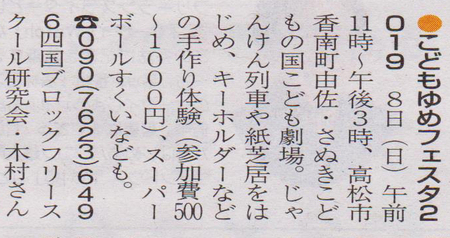 ●こどもゆめフェスタ2
019　8日（日）午前
11時～午後3時、高松市
香南町由佐・さぬきこど
もの国こども劇場。じゃ
んけん列車や紙芝居をは
じめ、キーホルダーなど
の手作り体験（参加費500
～1000円）、スーパー
ボールすくいなども。
☎090(7623)649
6四国ブロックフリース
クール研究会・木村さん